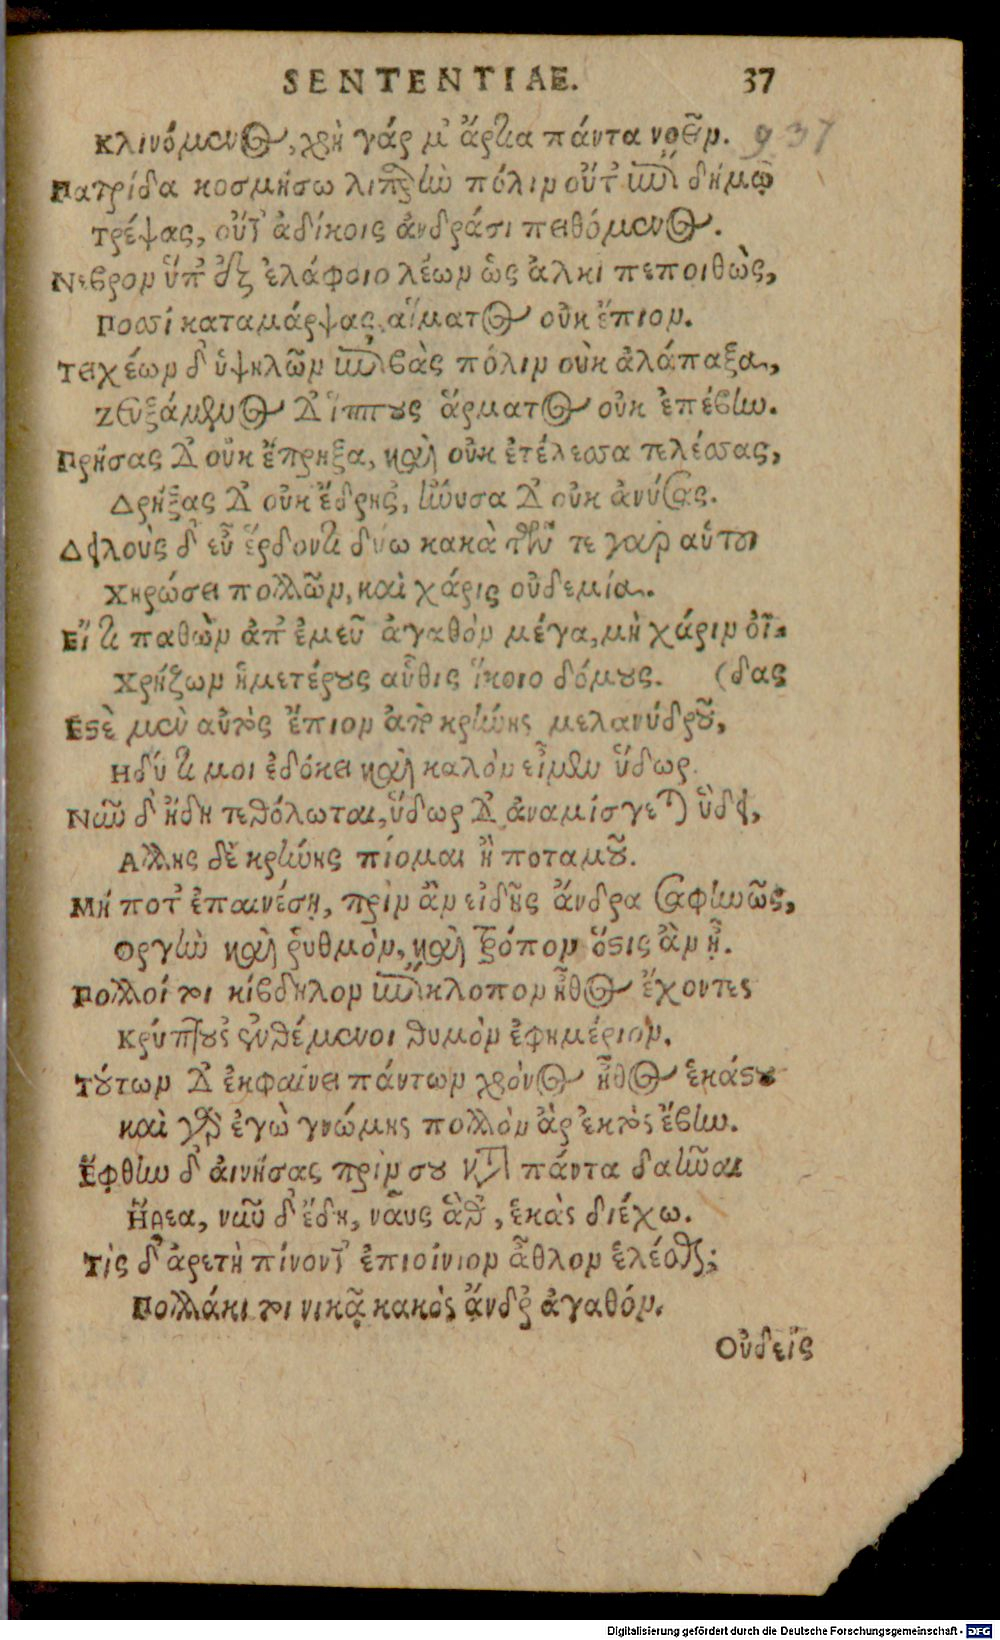 SENTENTIAE. 37
Κλινόμενος, χρὴ γάρ μ' ἄρτια πάντα νοεῖν. 937
Πατρίδα κοσμήσω λιπαρὴν πόλιν οὔτ' ἐπὶ δήμῳ
Τρέψας, οὔτ' ἀδίκοις ἀνδράσι πειθόμενος.
Νεβρὸν ὑπ' ἐξ ἐλάφοιο λέων ὡς ἀλκὶ πεποιθὼς,
Ποσσὶ καταμάρψας αἵματος οὐκ ἔπιον.
Τειχέων δ' ὑψηλῶν ἐπιβὰς πόλιν οὐκ ἀλάπαξα,
Ζευξάμενος δ' ἵππους ἅρματος οὐκ ἐπέβην.
Πρήσας δ' οὐκ ἔπρηξα, καὶ οὐκ ἐτέλεσσα τελέσσας,
Δρήξας δ' οὐκ ἔδρης', ἤνυσα δ' οὐκ ἀνύσας.
Δειλοὺς δ' εὖ ἕρδοντι δύω κακὰ τῶν τε γὰρ αὑτοῦ
Χηρώσει πολλῶν, καὶ χάρις οὐδεμία.
Εἴ τι παθὼν ἀπ' ἐμεῦ ἀγαθὸν μέγα, μὴ χάριν οἶ-
Χρήζων ἡμετέρους αὖθις ἵκοιο δόμους. (δας
Εςὲ μὲν αὐτὸς ἔπιον ἀπὸ κρήνης μελανύδρου,
Ηδύ τι μοι ἐδόκει καὶ καλὸν εἶμεν ὕδωρ.
Νῦν δ' ἤδη τεθόλωται, ὕδωρ δ' ἀναμίσγεται ὕδει,
Αλλης δὲ κρήνης πίομαι ἢ ποταμοῦ.
Μή ποτ' ἐπαινέσῃ, πρὶν ἂν εἰδῇς ἄνδρα σαφηνῶς,
Οργὴν καὶ ῥυθμὸν, καὶ τρόπον ὅστις ἂν ᾖ.
Πολλοί τοι κίβδηλον ἐπίκλοπον ἦθος ἔχοντες
Κρύπτους' ἐνθέμενοι θυμὸν ἐφημέριον.
Τούτων δ' ἐκφαίνει πάντων χρόνος ἦθος ἑκάστου
καὶ γὰρ ἐγὼ γνώμης πολλὸν ἂρ' ἐκτὸς ἔβην.
Εφθην δ' αἰνήσας πρὶν σου κατὰ πάντα δαῆναι
Ηθεα, νῦν δ' ἔδη, ναῦς ἅθ', ἑκὰς διέχω.
Τίς δ' ἀρετὴ πίνοντ' ἐπιοίνιον ἆθλον ἑλέσθαι;
Πολλάκι τοι νικᾷ κακὸς ἄνδρ' ἀγαθόν.
Οὐδείς
Digitalisierung gefördert durch die Deutsche Forschungsgemeinschaft - DFG